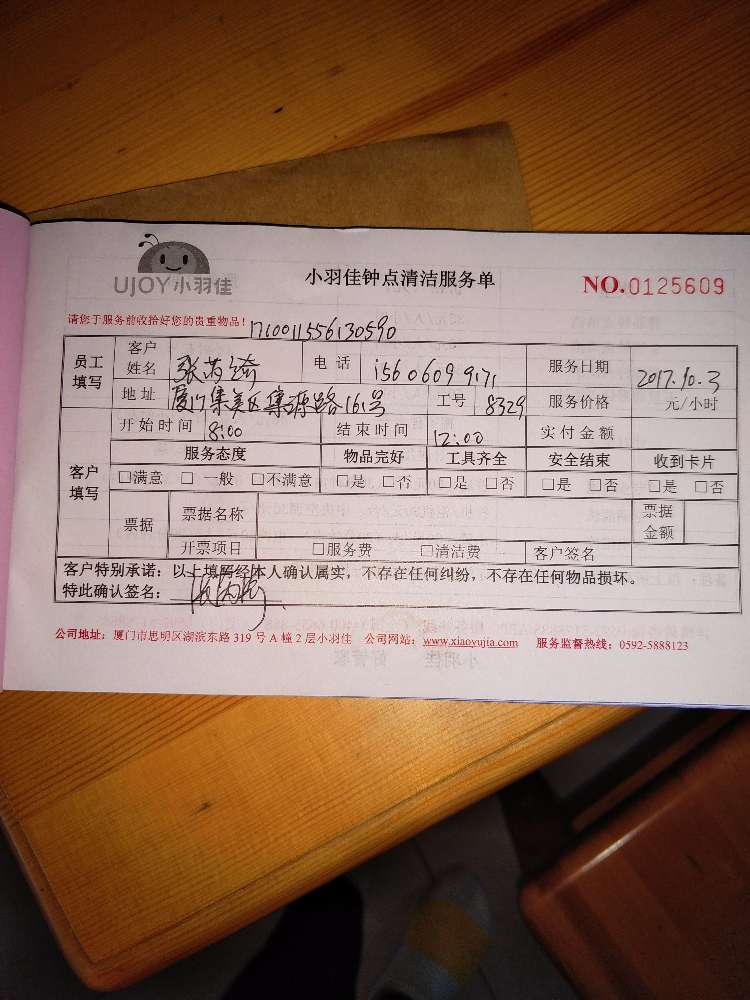 UJOY小羽佳
小羽佳钟点清洁服务单
NO.0125609
请您于服务前收拾好您的贵重物品!
1710011556130590
员工填写 客户姓名 张 琦 电话 15606099171 服务日期 2017.10.3
地址 厦门集美区集源路161号 工号 8329 服务价格 元/小时
客户填写 开始时间 8:00 结束时间 12:00 实付金额
服务态度 物品完好 工具齐全 安全结束 收到卡片
□满意 □一般 □不满意 □是 □否 □是 □否 □是 □否 □是 □否
票据 票据名称 票据金额
开票项目 □服务费 □清洁费 客户签名
客户特别承诺:以上填写经本人确认属实,不存在任何纠纷,不存在任何物品损坏。
特此确认签名:
公司地址:厦门市思明区湖滨东路 319 号 A 幢 2 层小羽佳 公司网站:www.xiaoyujia.com 服务监督热线:0592-5888123